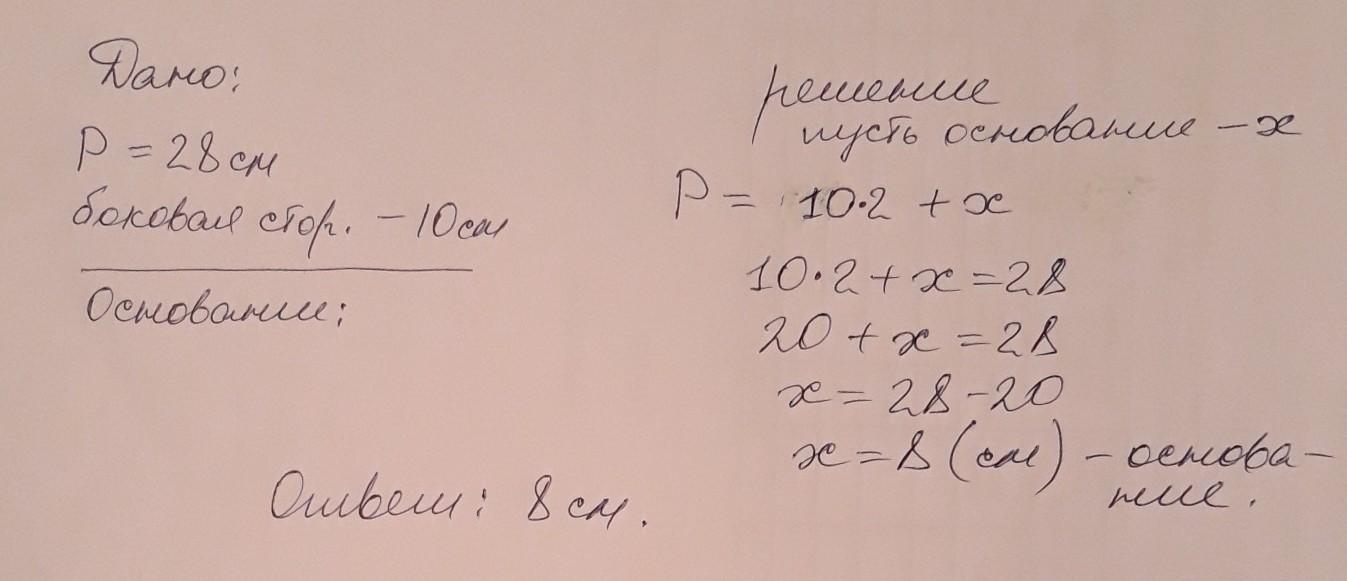 Дано:
P = 28 см
боковая стор. – 10 см
Основание:
решение
пусть основание – x
P = 10·2 + x
10·2 + x = 28
20 + x = 28
x = 28 - 20
x = 8 (см) – основа-
ние.
Ответ: 8 см.